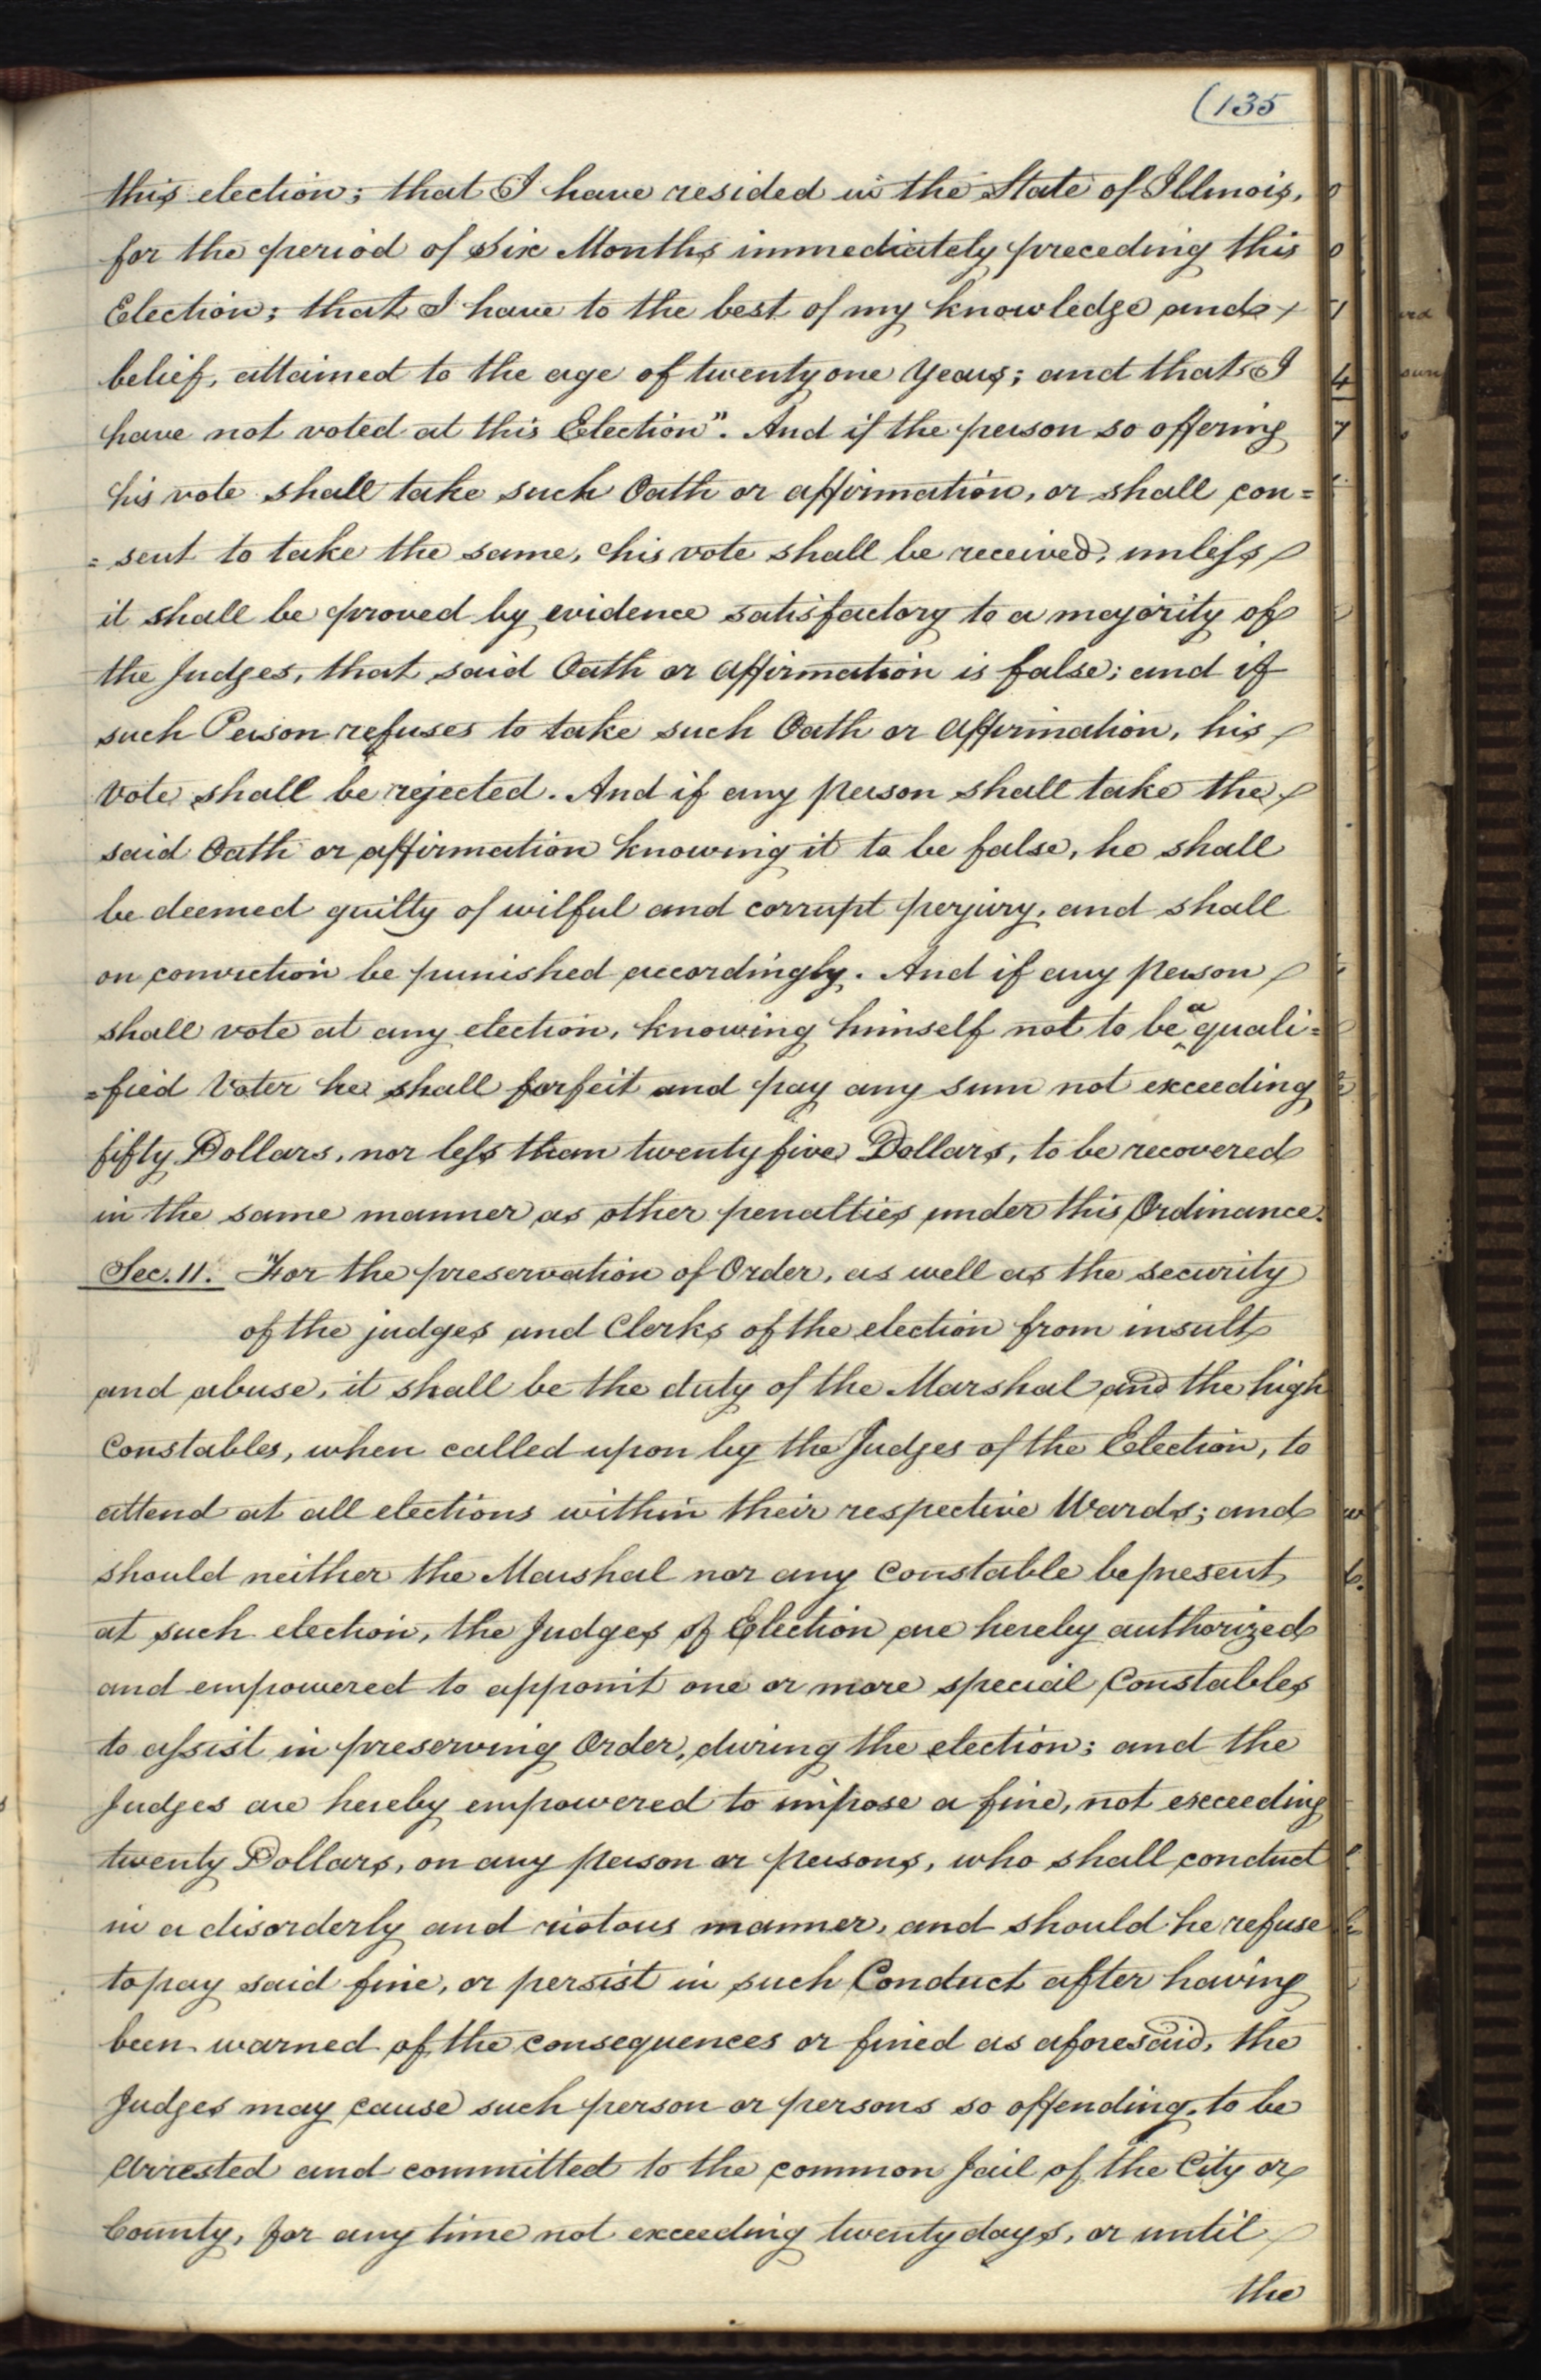 (135
this election; that I have resided in the State of Illinois,
for the period of Six Months immediately preceding this
Election; that I have to the best of my knowledge and
belief, attained to the age of twenty one Years; and that I
have not voted at this Election". And if the person so offering
his vote shall take such Oath or affirmation, or shall con=
=sent to take the same, his vote shall be received, unless
it shall be proved by evidence satisfactory to a majority of
the Judges, that said Oath or affirmation is false; and if
such Person refuses to take such Oath or Affirmation, his
Vote shall be rejected. And if any person shall take the
said Oath or affirmation knowing it to be false, he shall
be deemed guilty of wilful and corrupt perjury, and shall
on conviction be punished accordingly. And if any person
shall vote at any election, knowing himself not to be a quali=
=fied Voter he shall forfeit and pay any sum not exceeding
fifty Dollars, nor less than twenty five Dollars, to be recovered
in the same manner as other penalties under this Ordinance.
Sec. 11. For the preservation of Order, as well as the security
of the judges and Clerks of the election from insult
and abuse, it shall be the duty of the Marshal and the high
Constables, when called upon by the Judges of the Election, to
attend at all elections within their respective Wards; and
should neither the Marshal nor any Constable be present
at such election, the Judges of Election are hereby authorized
and empowered to appoint one or more special Constables
to assist in preserving Order, during the election; and the
Judges are hereby empowered to impose a fine, not exceeding
twenty Dollars, on any person or persons, who shall conduct
in a disorderly and riotous manner, and should he refuse
to pay said fine, or persist in such Conduct after having
been warned of the consequences or fined as aforesaid, the
Judges may cause such person or persons so offending, to be
Arrested and committed to the common Jail of the City or
County, for any time not exceeding twenty days, or until
the